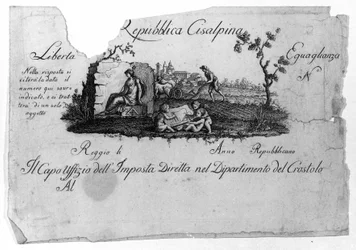 Repubblica Cisalpina
Libertà
Eguaglianza
Nella risposta si
citerà la data il
numero qui sovra
indicato, e si trat-
terà di un solo
oggetto
N
Reggio li
Anno
Repubblicano
Il Capo Uffizio dell'Imposta Diretta nel Dipartimento del Crostolo
Al